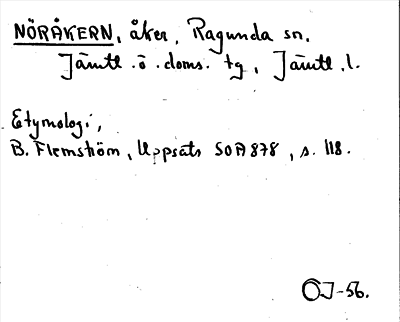 NÖRÅKERN, åker, Ragunda sn.
Jämtl. ö. doms. tg, Jämtl. l.
Etymologi,
B. Flemström, Uppsats SOA 878, s. 118.
OJ-56.